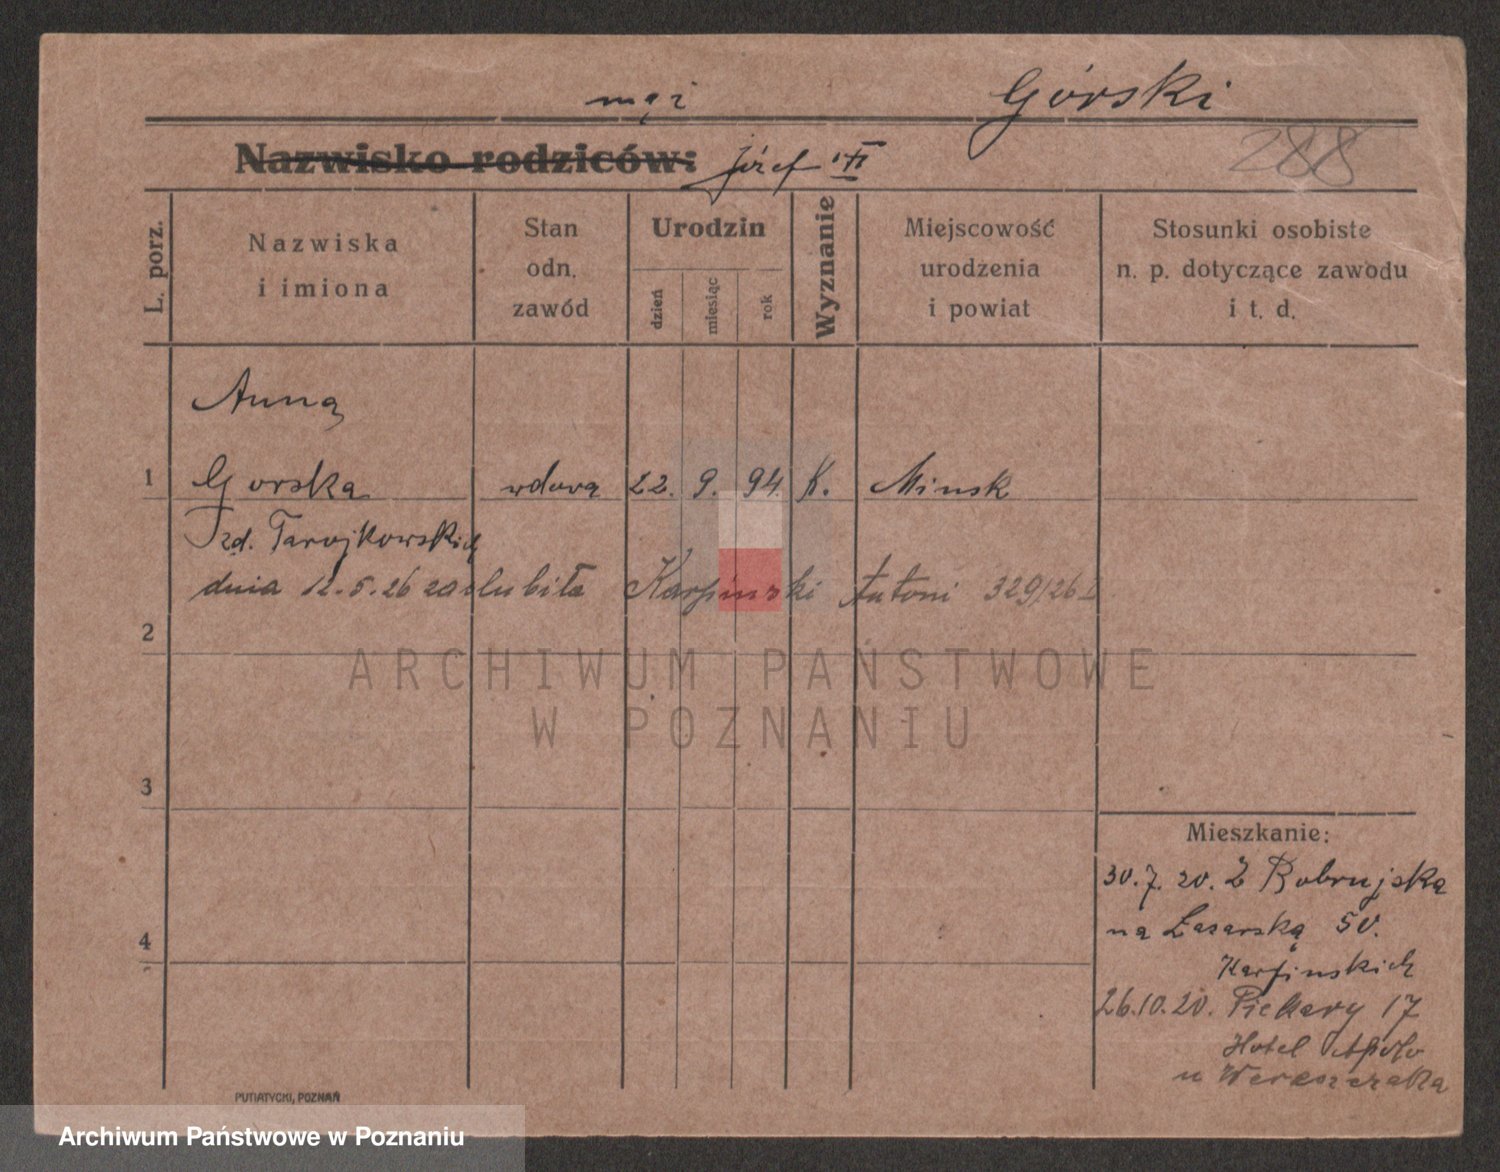 mąż Górski
Nazwisko rodziców: Józef
288
L. porz.
Nazwiska
i imiona
Stan
odn.
zawód
Urodzin
dzień
miesiąc
rok
Wyznanie
Miejscowość
urodzenia
i powiat
Stosunki osobiste
n. p. dotyczące zawodu
i t. d.
Anna
1 Gorska wdowa 22. 9. 94. K. Minsk
zd.
dnia 12.5.26 zaslubiła Karpinski Antoni 329/26 I
2
ARCHIWUM PAŃSTWOWE
W POZNANIU
3
4
Mieszkanie:
30.7.20. Z Bobrujska
na Łazarską 50.
Karpinskich
26.10.20. Piekary 17
Hotel Apolo
u
PUTIATYCKI, POZNAŃ
Archiwum Państwowe w Poznaniu